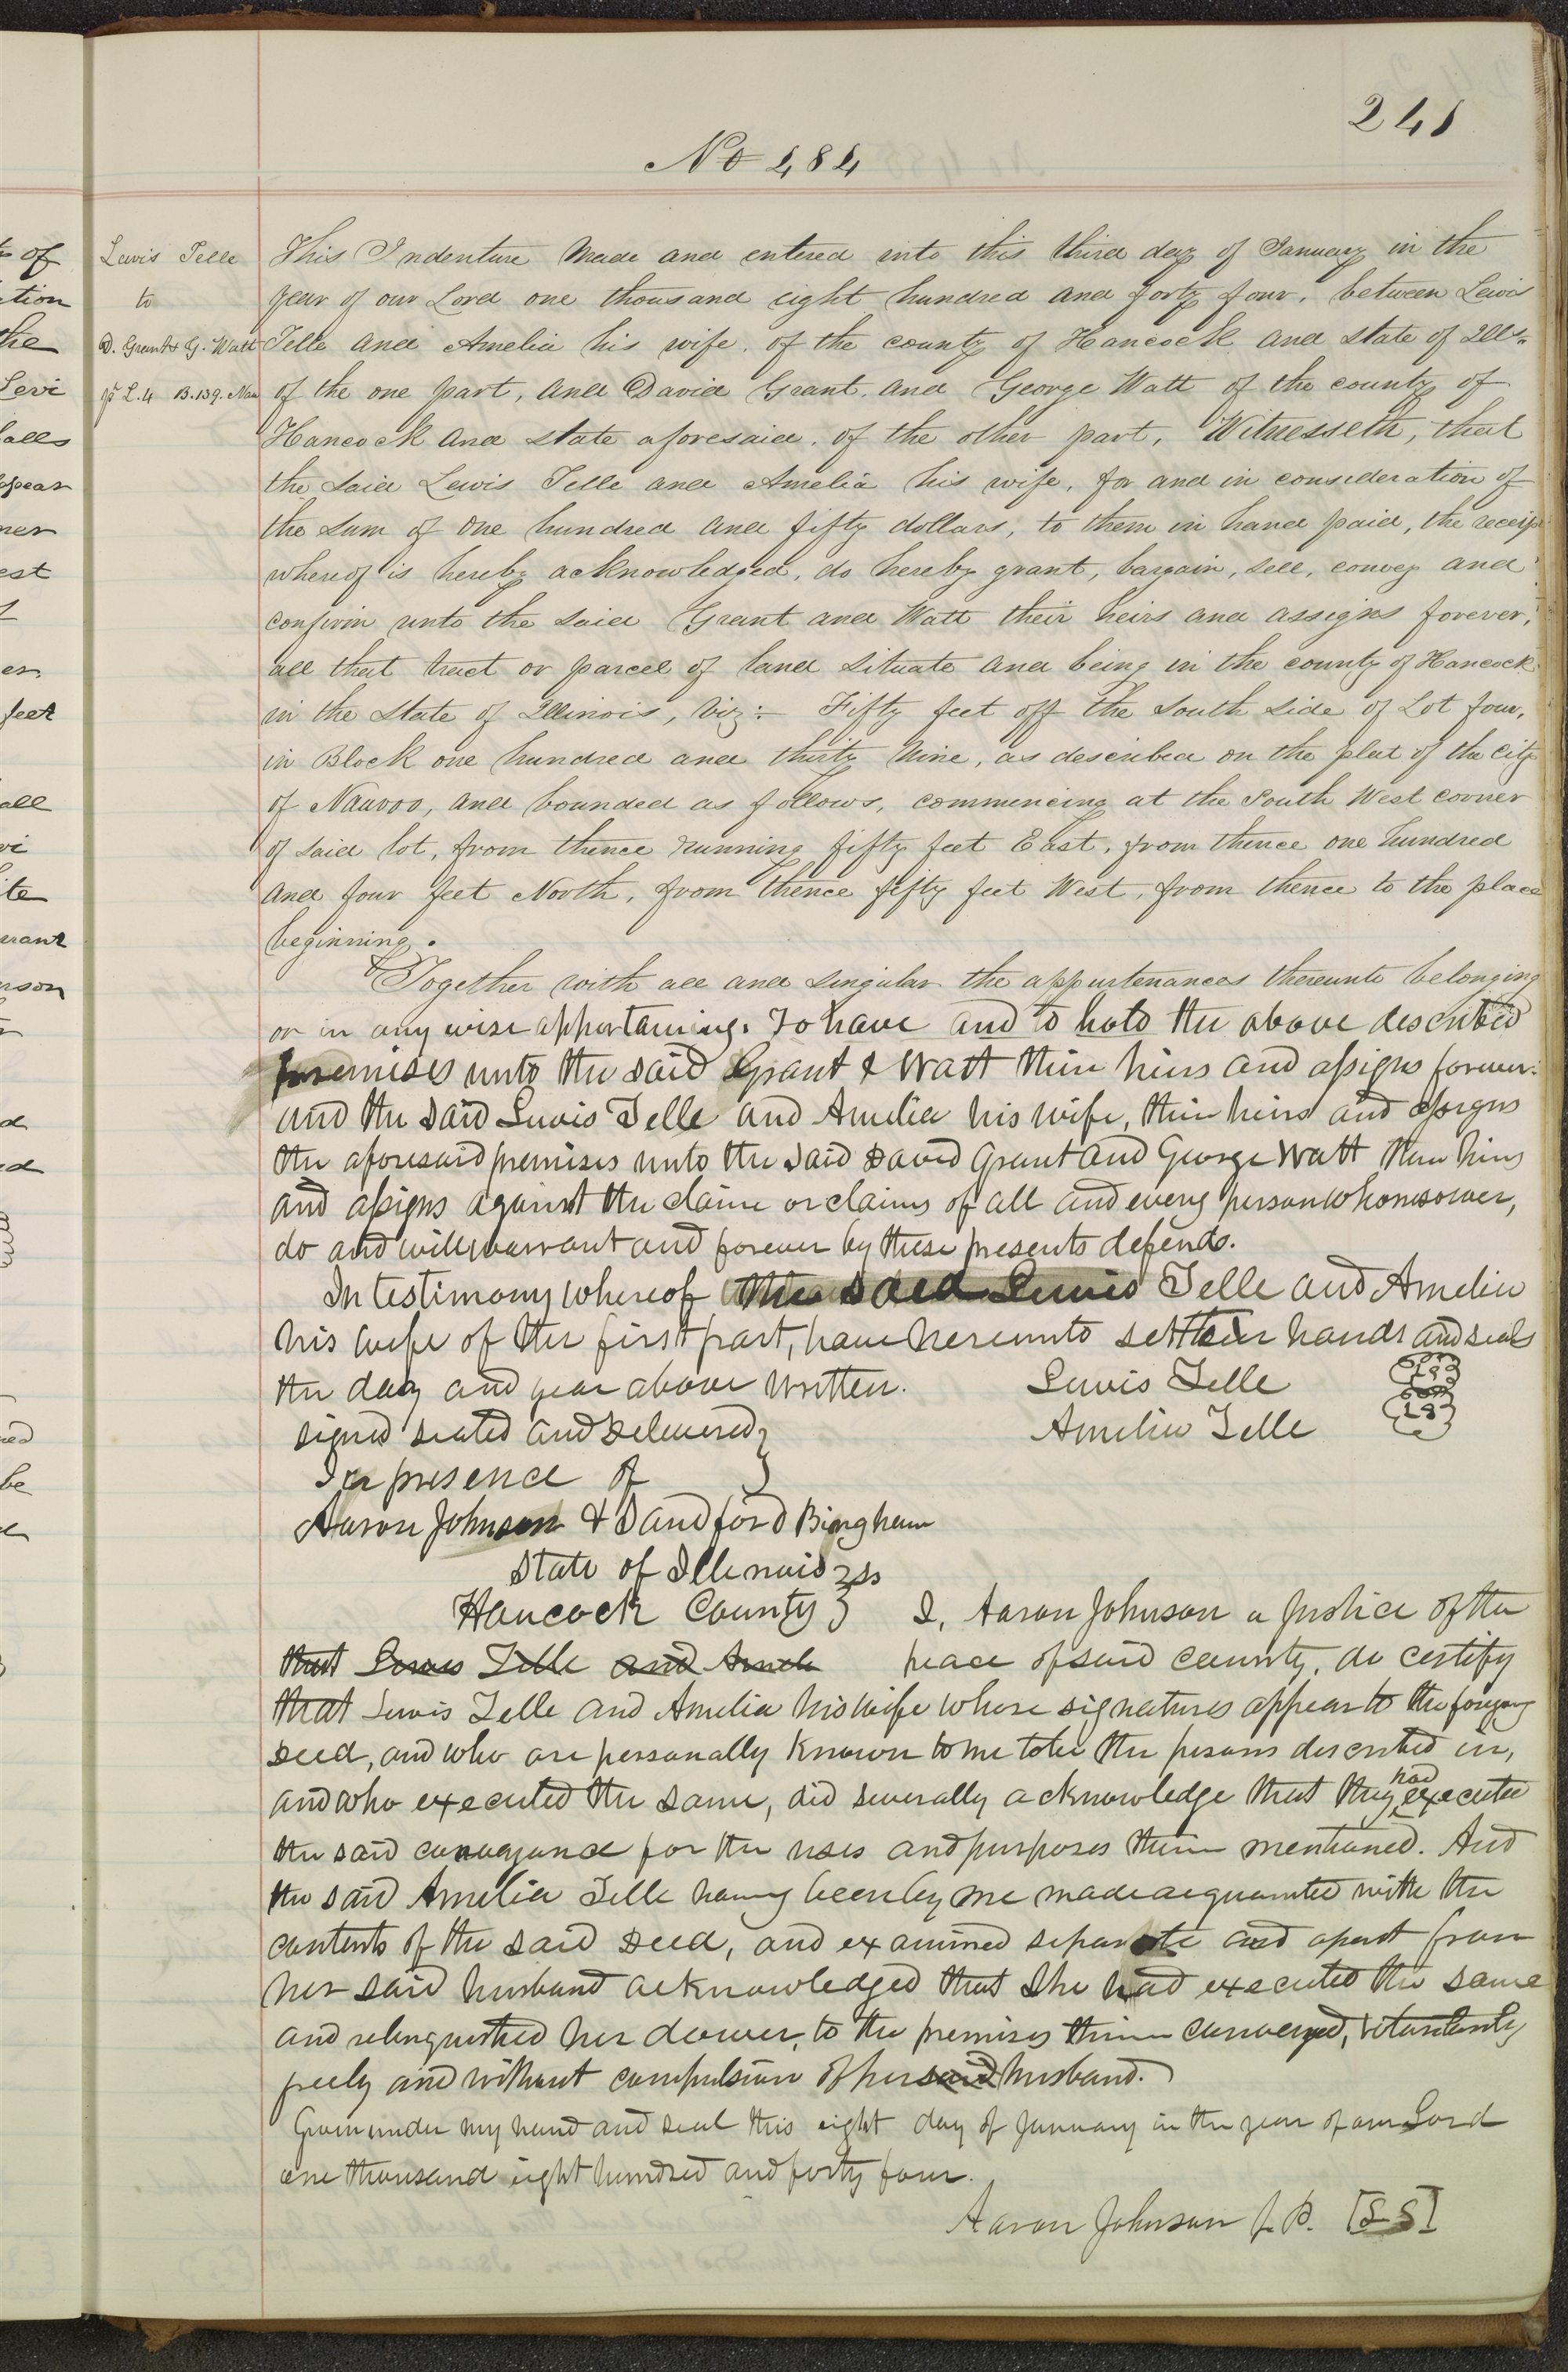 241
No 484
Lewis Telle
to
D. Grant & G. Watt
pt L. 4 B. 139. Nau
This Indenture Made and entered into this third day of January in the
year of our Lord one thousand eight hundred and forty four, between Lewis
Telle and Amelia his wife, of the county of Hancock and State of Ills.
of the one part, and David Grant, and George Watt of the county of
Hancock and state aforesaid, of the other part, Witnesseth, that
the said Lewis Telle and Amelia his wife, for and in consideration of
the sum of one hundred and fifty dollars, to them in hand paid, the receipt
whereof is hereby acknowledged, do hereby grant, bargain, sell, convey and
confirm unto the said Grant and Watt their heirs and assigns forever,
all that tract or parcel of land situate and being in the county of Hancock
in the State of Illinois, Viz:- Fifty feet off the South Side of Lot four,
in Block one hundred and thirty Nine, as described on the plat of the city
of Nauvoo, and bounded as follows, commencing at the South West corner
of said lot, from thence running fifty feet East, from thence one hundred
and four feet North, from thence fifty feet West, from thence to the place
beginning.
Together with all and singular the appurtenances thereunto belonging
or in any wise appertaining. To have and to hold the above described
premises unto the said Grant & Watt their heirs and assigns forever.
and the said Lewis Telle and Amelia his wife, their heirs and assigns
the aforesaid premises unto the said David Grant and George Watt their heirs
and assigns against the claim or claims of all and every person whomsoever,
do and will warrant and forever by these presents defend.
In testimony whereof the said Lewis Telle and Amelia
his wife of the first part, have hereunto set their hands and seals
the day and year above written. Lewis Telle LS
signed sealed and Delivered } Amelia Telle LS
In presence of }
Aaron Johnson & Sandford Bingham
State of Illinois } ss
Hancock County } I, Aaron Johnson a Justice of the
that Lewis Telle and Amele peace of said county, do certify
that Lewis Telle and Amelia his wife whose signatures appear to the foregoing
Deed, and who are personally known to me to be the persons described in,
and who executed the same, did severally acknowledge that they had executed
the said conveyance for the uses and purposes therein mentioned. And
the said Amelia Telle having been by me made acquainted with the
contents of the said Deed, and examined separate and apart from
her said husband acknowledged that she had executed the same
and relinquished her dower, to the premises therein conveyed, voluntarily
freely and without compulsion of her said husband.
Given under my hand and seal this eight day of January in the year of our Lord
one thousand eight hundred and forty four.
Aaron Johnson J. P. [LS]